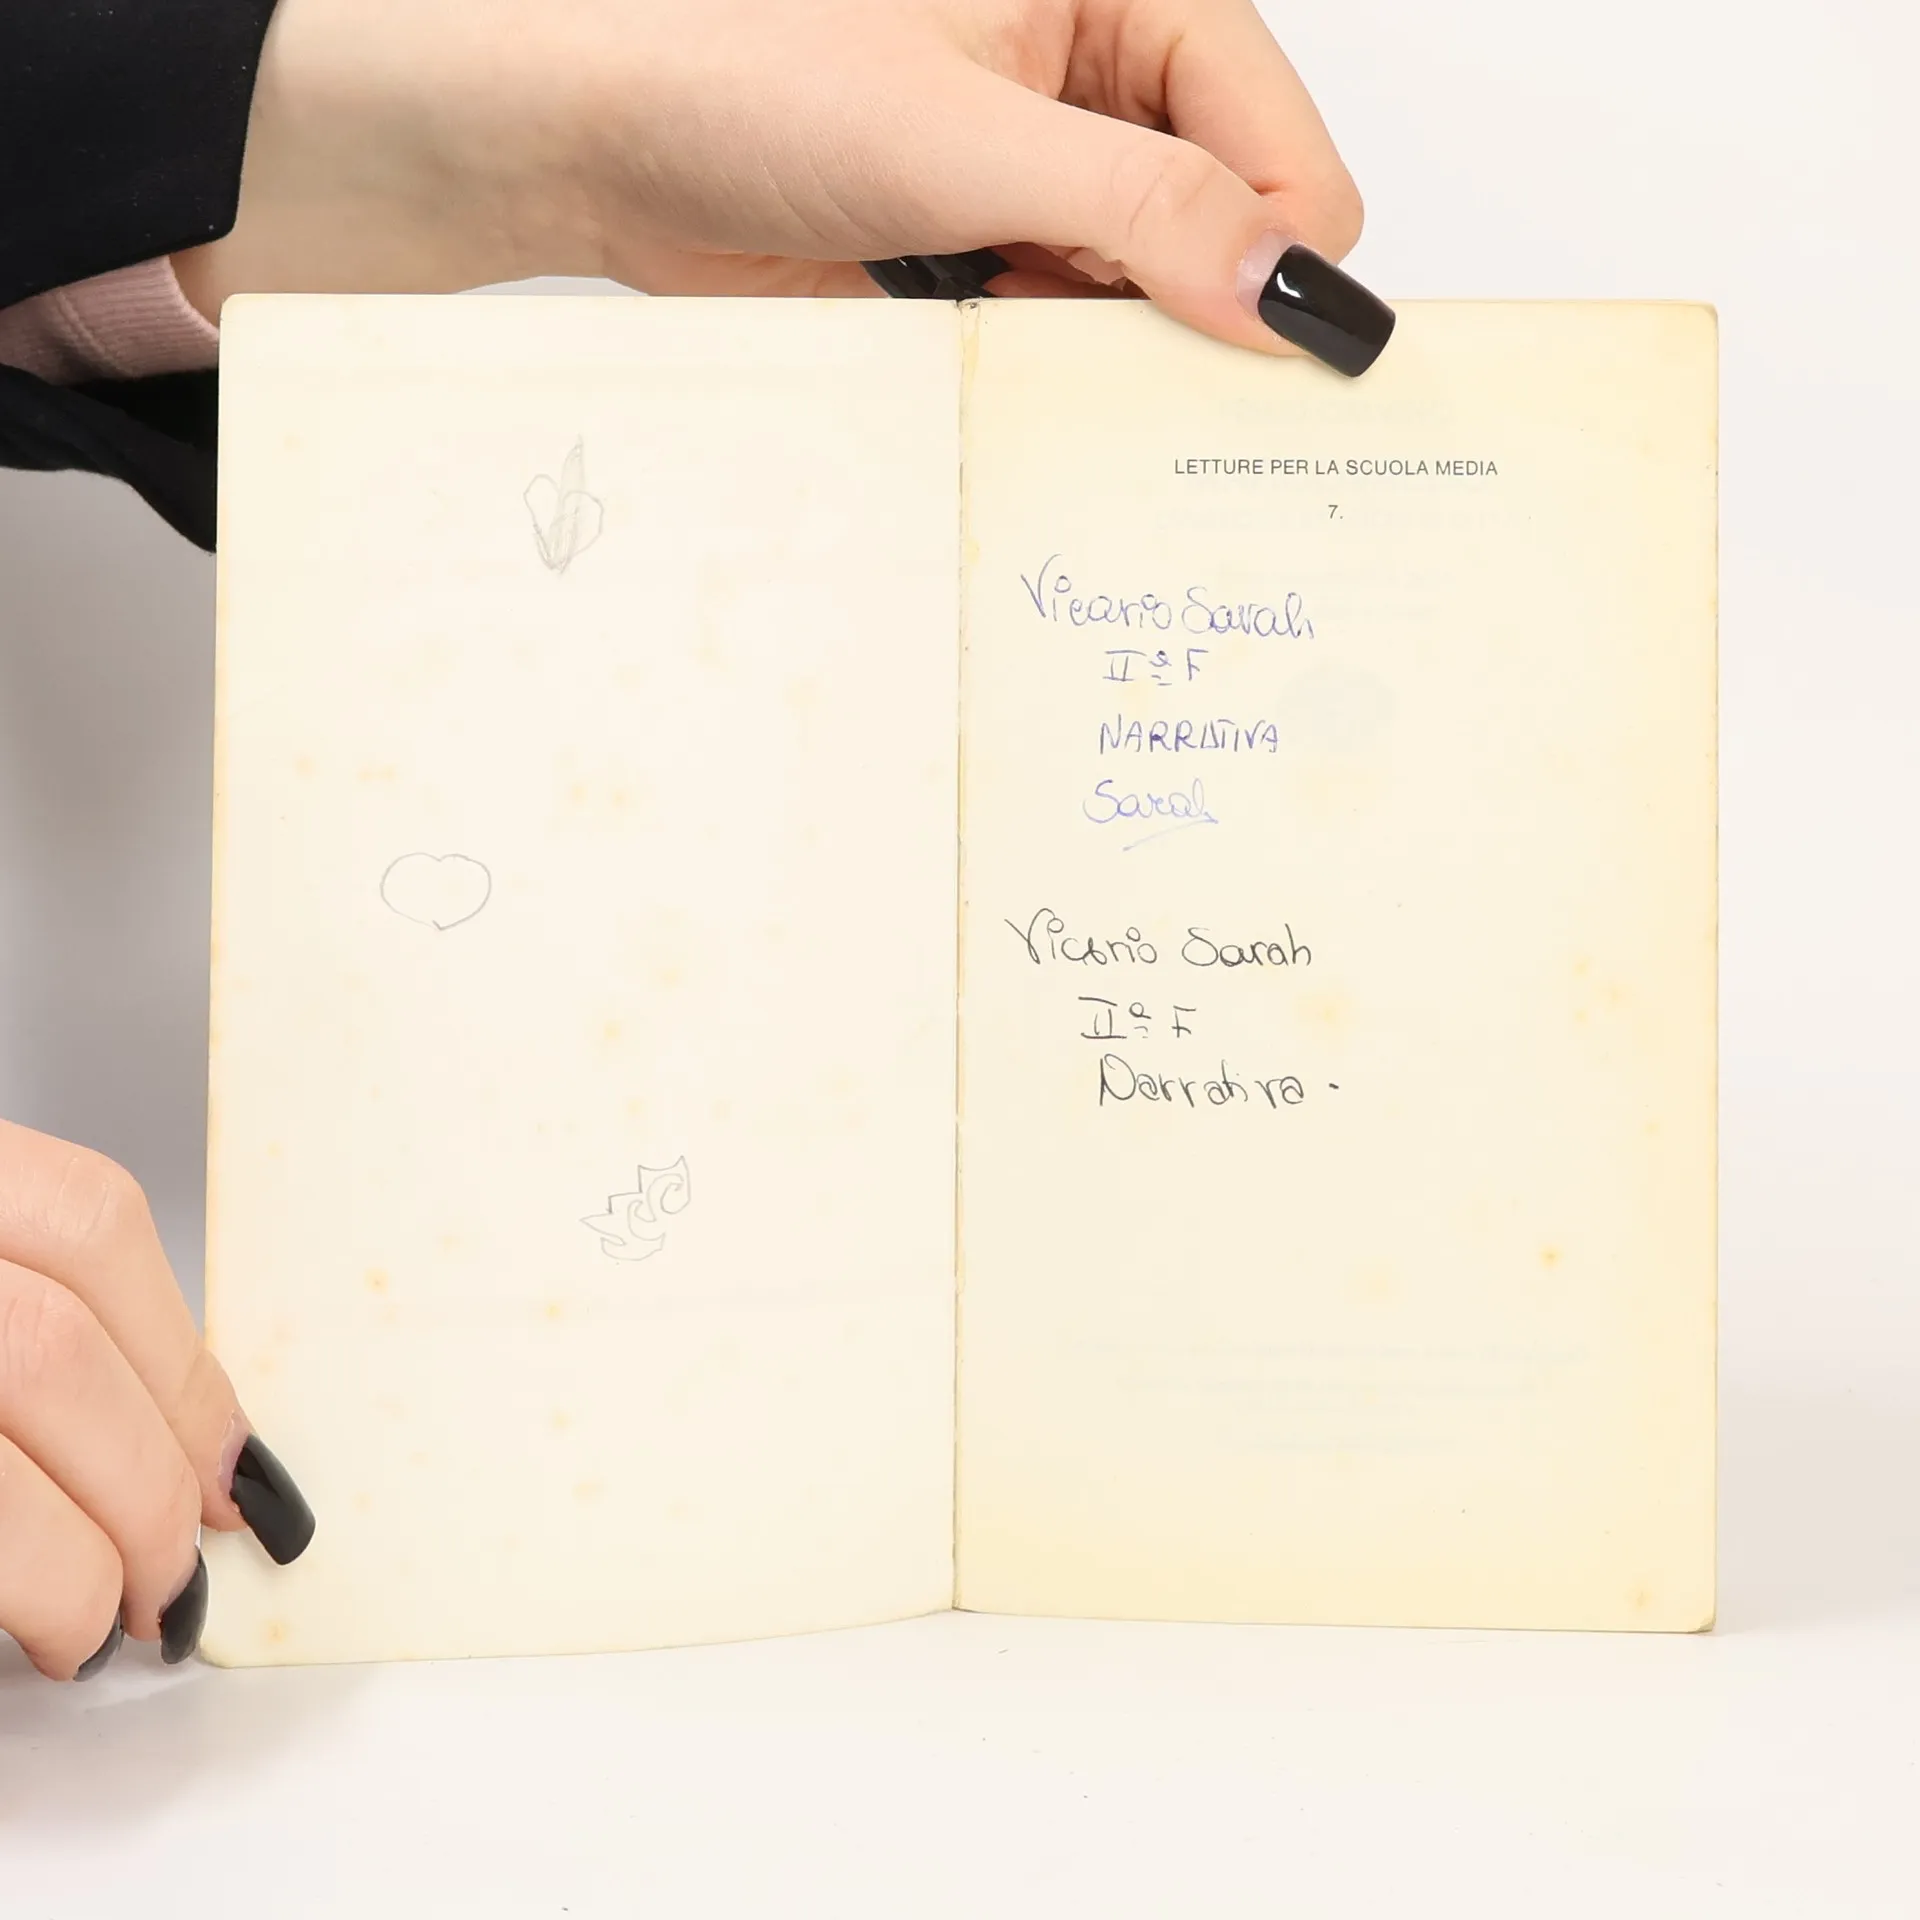 LETTURE PER LA SCUOLA MEDIA
7.
Vicario Sarah
IIª F
NARRATIVA
Sarah
Vicario Sarah
IIª F
Narrativa.